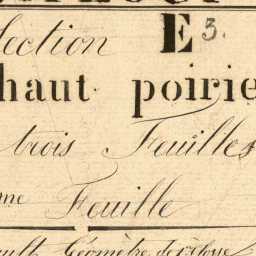 Section E 3.
haut poirie
trois Feuilles
me Feuille
ault Géomètre de 1re Classe